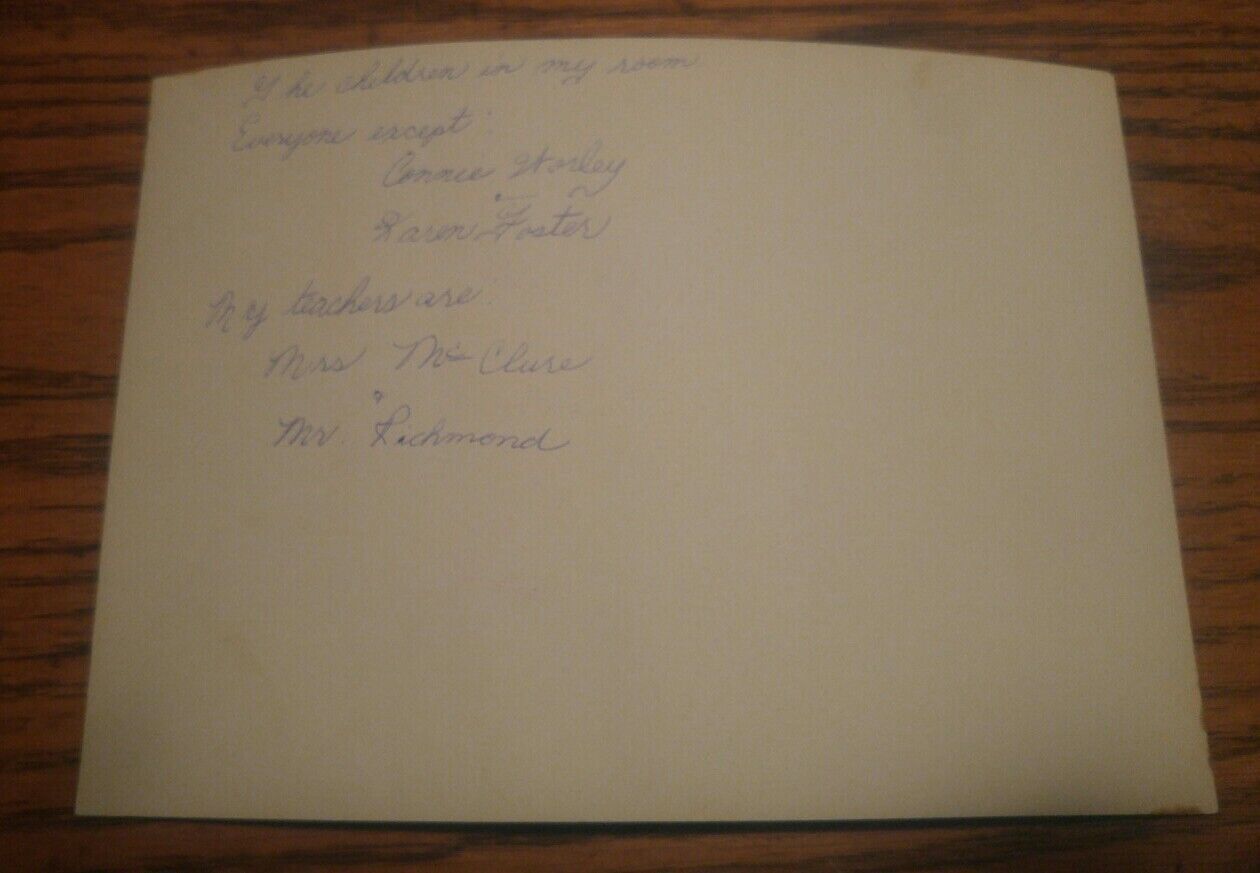 The children in my room
Everyone except:
Connie Worley
Karen Foster
My teachers are:
Mrs McClure
Mr. Richmond